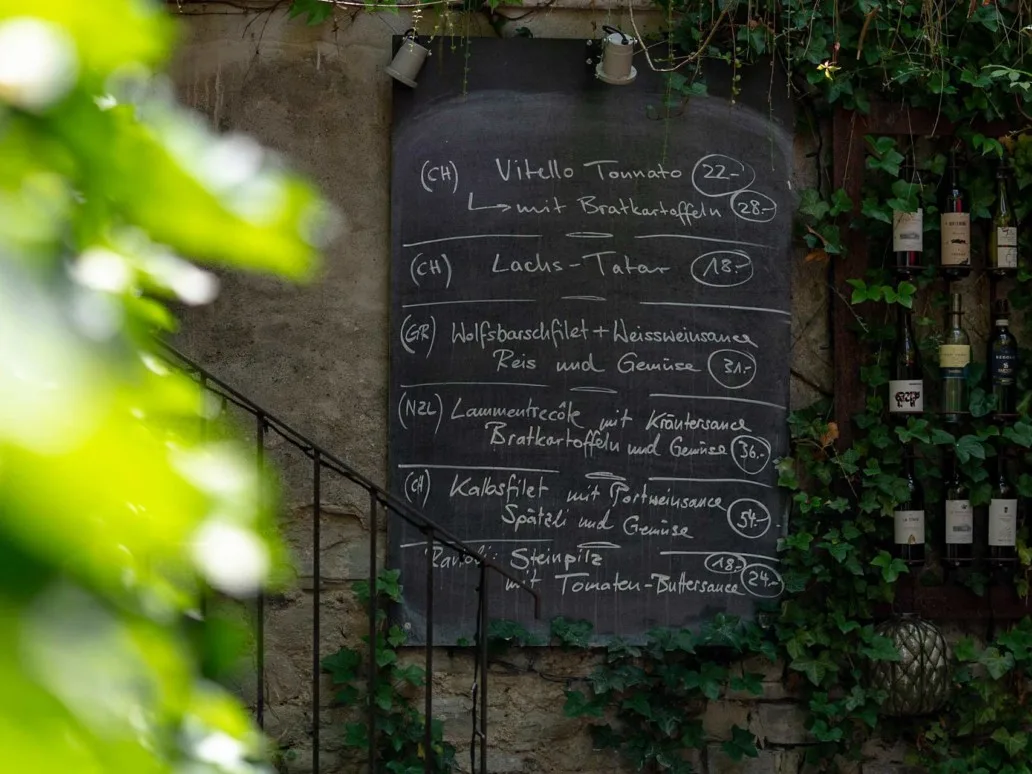 (CH) Vitello Tonnato 22.-
→ mit Bratkartoffeln 28.-
(CH) Lachs-Tatar 18.-
(GR) Wolfsbarschfilet + Weissweinsauce
Reis und Gemüse 31.-
(NZL) Lammentrecôte mit Kräutersauce
Bratkartoffeln und Gemüse 36.-
(CH) Kalbsfilet mit Portweinsauce
Spätzli und Gemüse 54.-
Ravioli: Steinpilz 18.-
mit Tomaten-Buttersauce 24.-